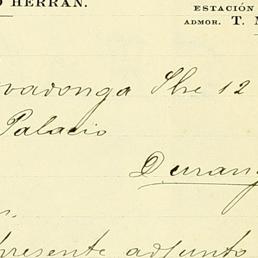 O HERRAN.
ESTACIÓN
ADMOR. T. M
vadonga Sbre 12
Palacio
Durang
presente adjunto